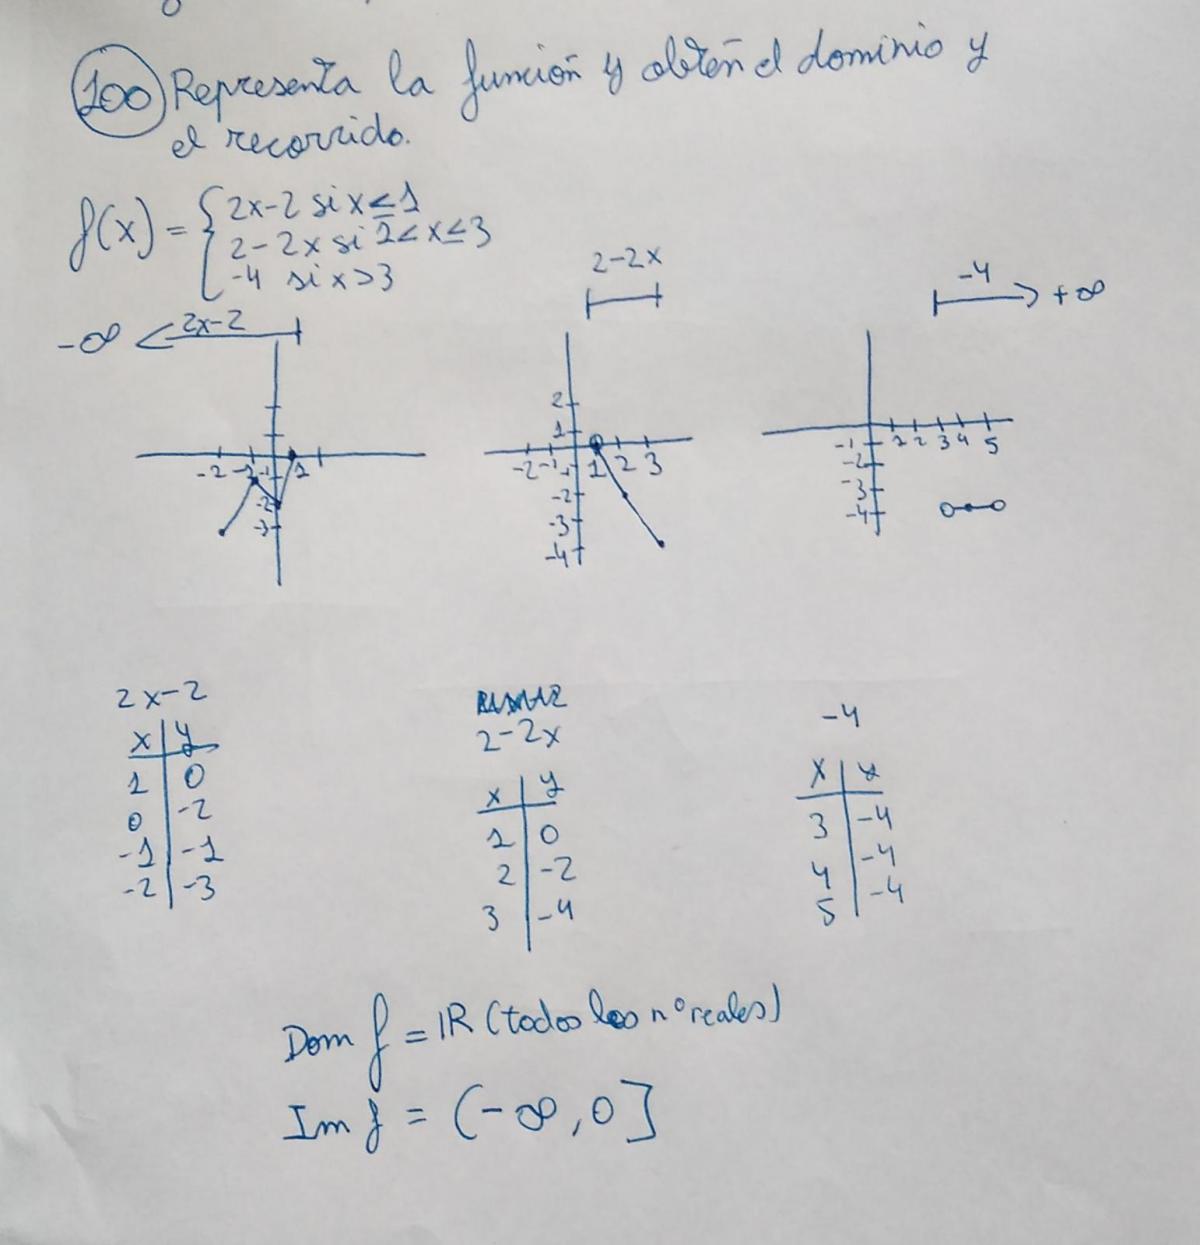 100 Representa la función y obtén el dominio y
el recorrido.
f(x) = { 2x-2 si x ≤ 1
2-2x si 1 < x ≤ 3
-4 si x > 3
-∞ 2x-2
2-2x
-4 +∞
-2 -1 1
-1
-2
-3
2
1
-2 -1 1 2 3
-1
-2
-3
-4
1 2 3 4 5
-1
-2
-3
-4
2x-2
x y
1 0
0 -2
-1 -1
-2 -3
2-2x
x y
1 0
2 -2
3 -4
-4
x y
3 -4
4 -4
5 -4
Dom f = IR (todos los nº reales)
Im f = (-∞, 0]